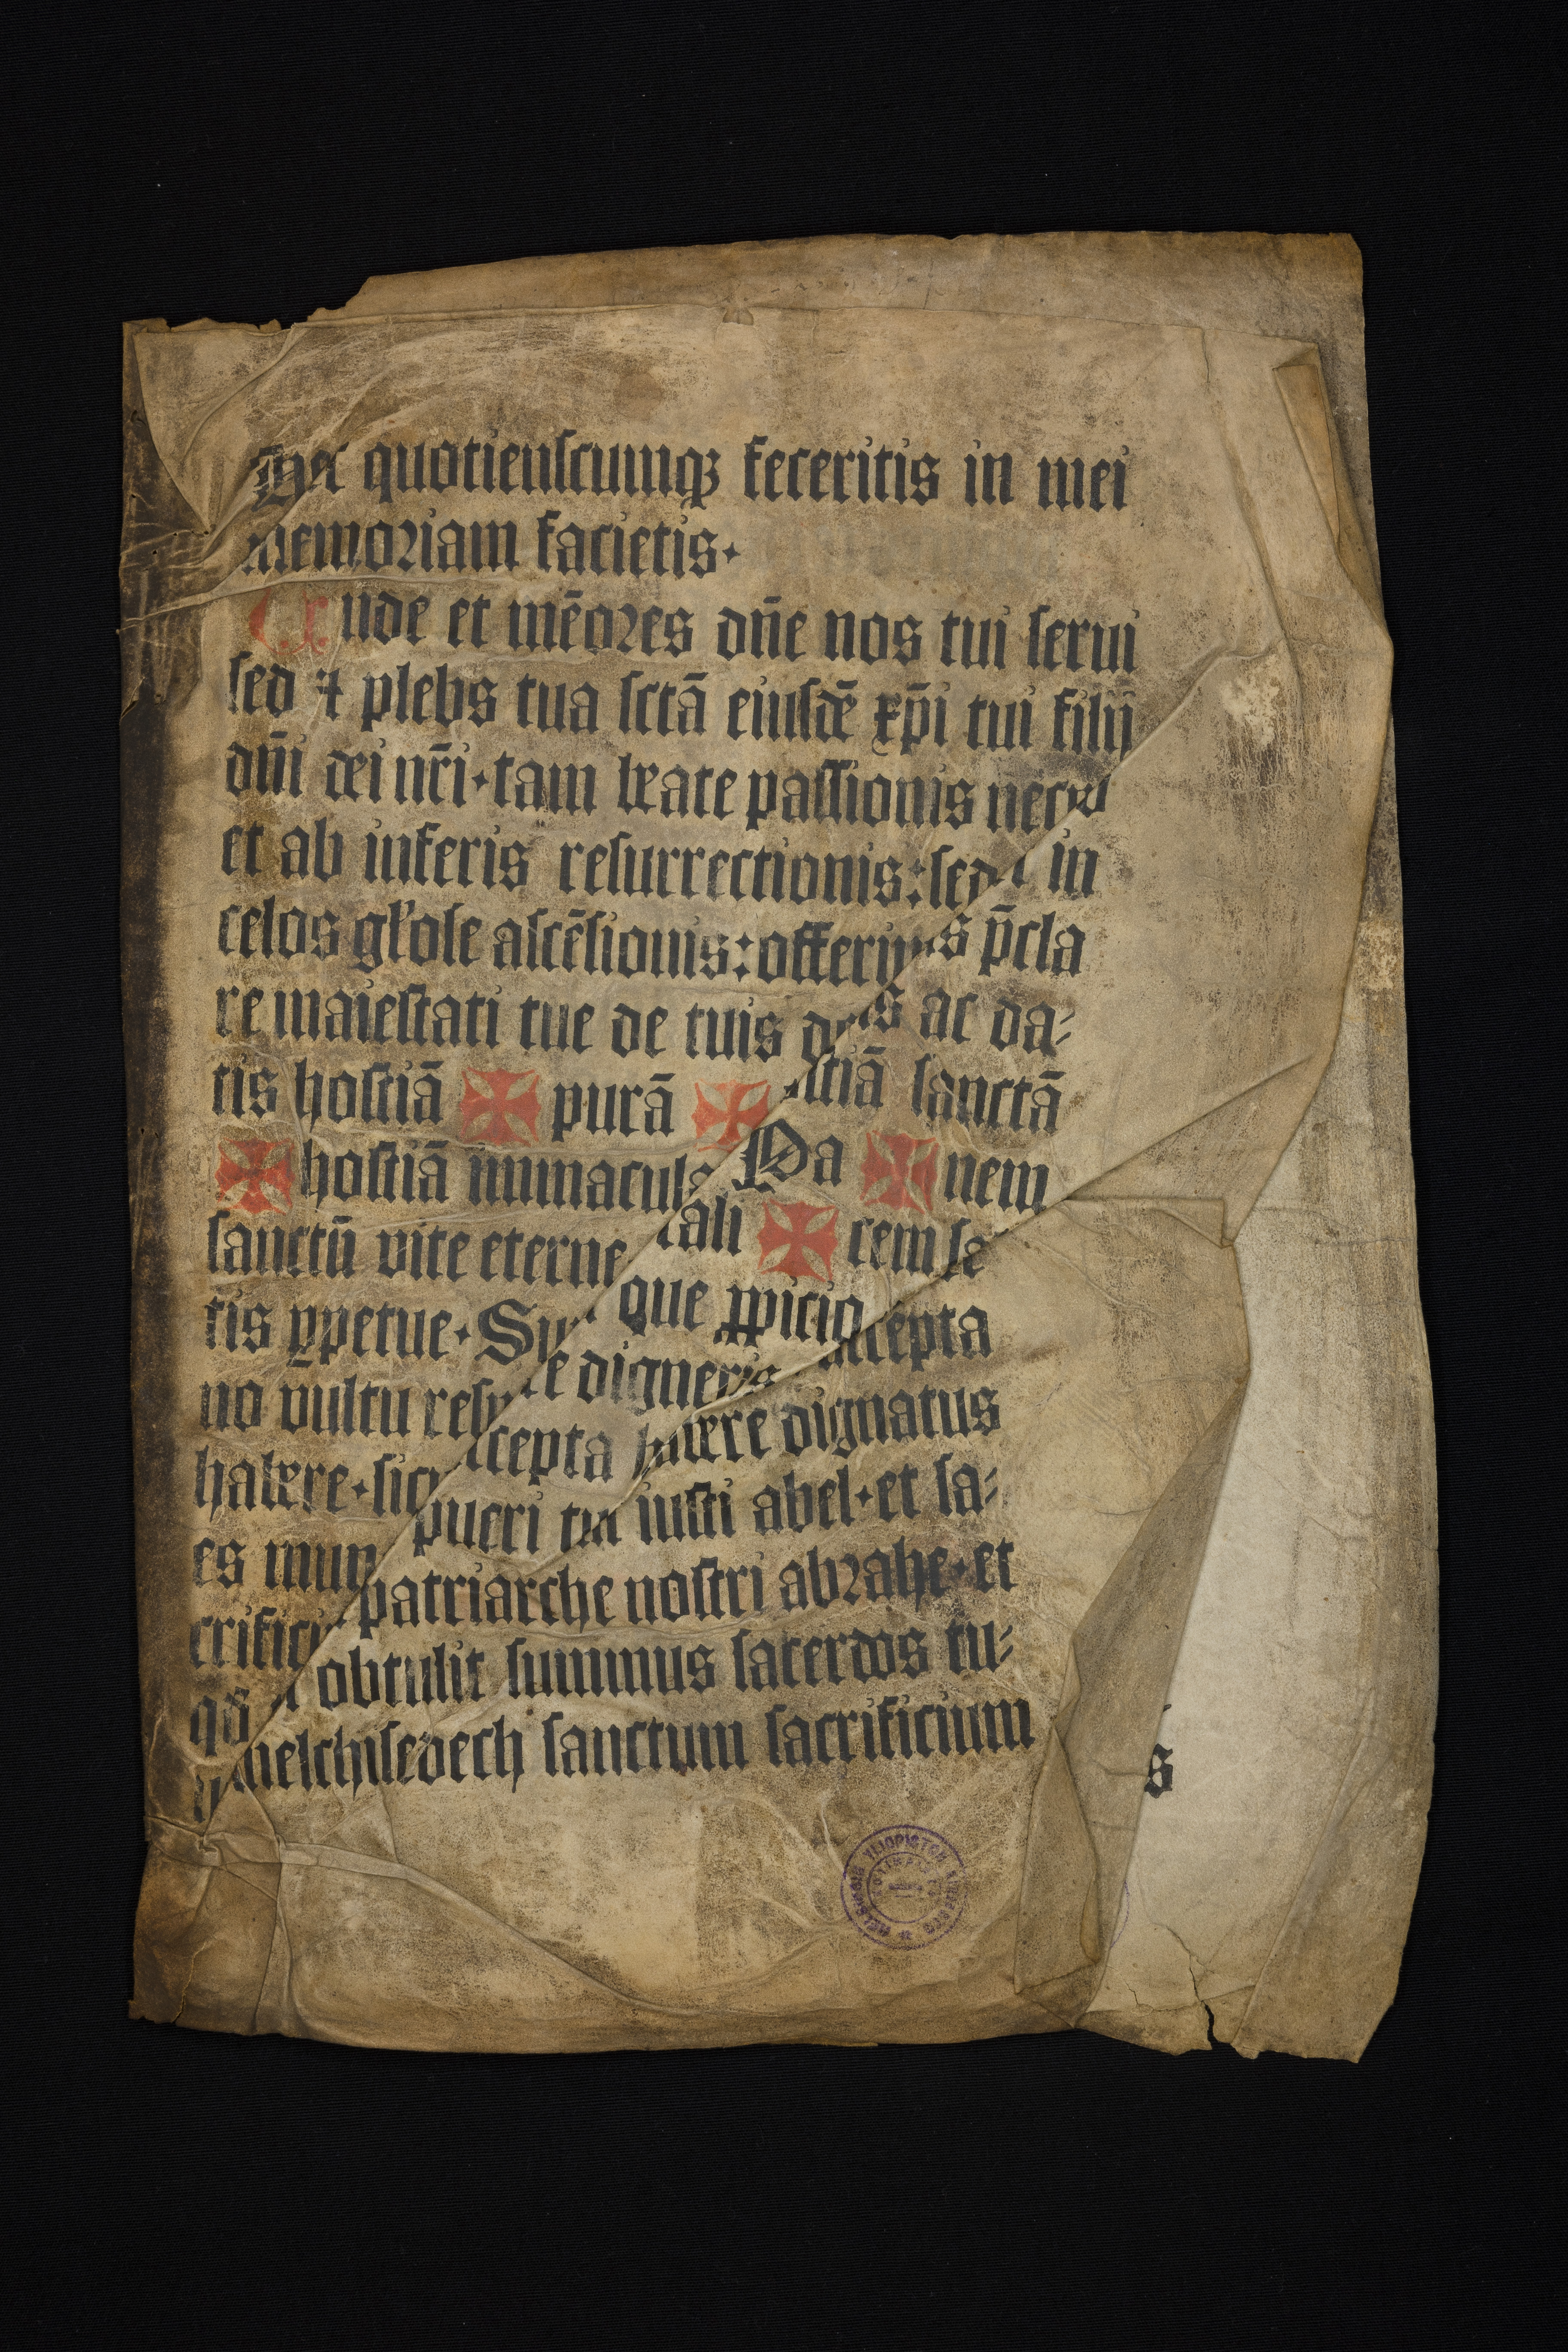 Hec quotienſcumqꝫ feceritis in mei
memoriam facietis·
Unde et mēores dn̄e nos tui ſerui
ſed ⁊ plebs tua ſctā eiuſdē xp̄i tui filij
dn̄i dei nr̄i·tam beate paſſionis
et ab inferis reſurrectionis:ſed in
celos gl'oſe aſcēſionis: p̄cla
re maieſtati tue de tuis ac da-
tis hoſtiā ✠ purā ✠ ſanctā
✠ hoſtiā Pa ✠ nem
ſanctū vite eterne cali ✠ cem
tis ꝑpetue· que ꝓpicio
no vultu digneris accepta
habere· accepta habere dignatus
es pueri tui iuſti abel·et ſa-
patriarche noſtri abrahe·et
qd̄ obtulit ſummus ſacerdos tu-
melchiſedech ſanctum ſacrificium